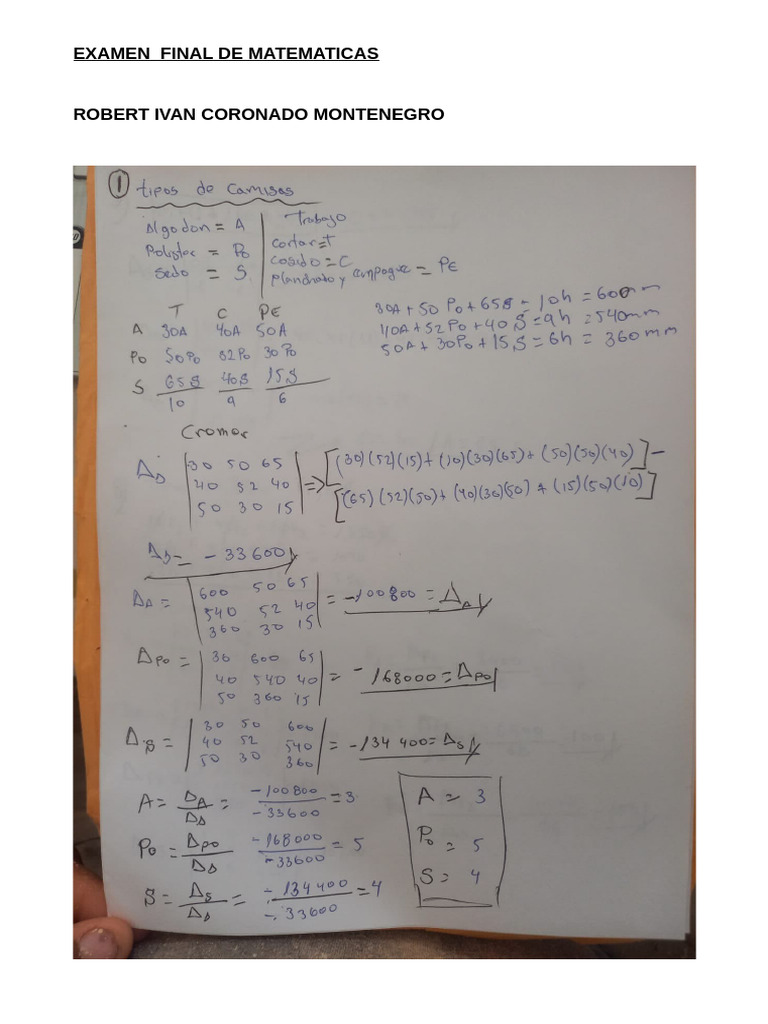 EXAMEN FINAL DE MATEMATICAS
ROBERT IVAN CORONADO MONTENEGRO
1 tipos de camisas
Algodon = A
Polister = Po
Seda = S
Trabajo
cortar = T
cosido = C
planchado y empaque = PE
T C PE
A 30A 40A 50A
Po 50Po 52Po 30Po
S 65S 40S 15S
10 9 6
30A + 50Po + 65S = 10h = 600mm
40A + 52Po + 40S = 9h = 540mm
50A + 30Po + 15S = 6h = 360mm
Cromer
ΔD |30 50 65
40 52 40
50 30 15| => [(30)(52)(15) + (10)(30)(65) + (50)(50)(40)] -
[(65)(52)(50) + (40)(30)(50) + (15)(50)(10)]
ΔD = -33600
ΔA = |600 50 65
540 52 40
360 30 15| = -100800 = ΔA
ΔPo = |30 600 65
40 540 40
50 360 15| = -168000 = ΔPo
ΔS = |30 50 600
40 52 540
50 30 360| = -134400 = ΔS
A = ΔA/ΔD = -100800/-33600 = 3
Po = ΔPo/ΔD = -168000/-33600 = 5
S = ΔS/ΔD = -134400/-33600 = 4
A = 3
Po = 5
S = 4